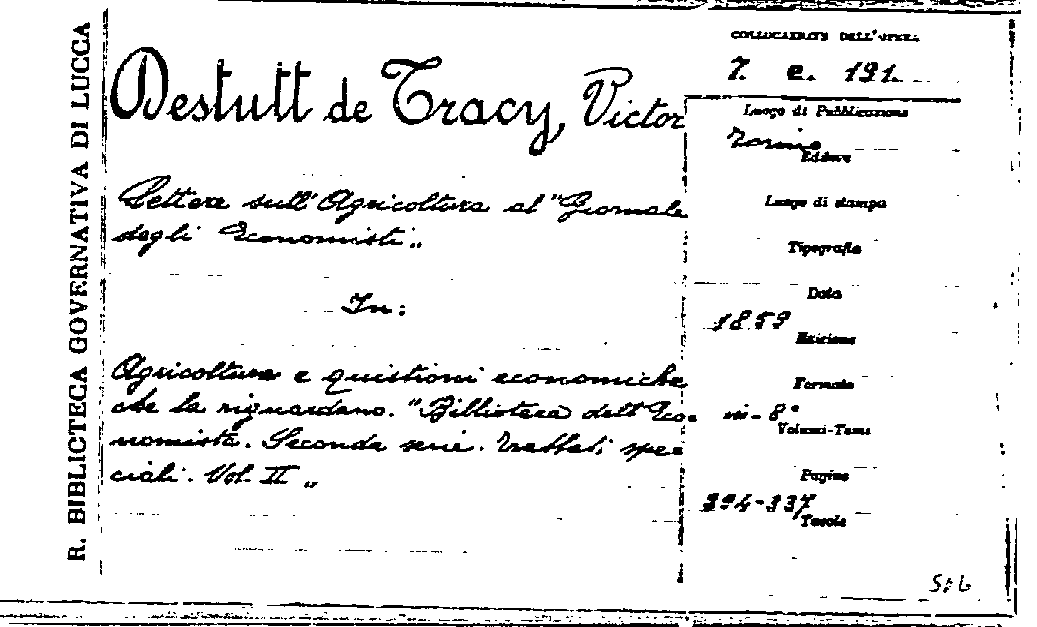 R. BIBLIOTECA GOVERNATIVA DI LUCCA
Destutt de Tracy, Victor
Lettere sull'Agricoltura al "Giornale
degli Economisti„
In:
Agricoltura e quistioni economiche
che la riguardano. "Biblioteca dell'Eco-
nomista. Seconda serie. Trattati spe-
ciali. Vol. II „
DELL'OPERA
7. e. 191.
Luogo di Pubblicazione
Torino
Editore
Luogo di stampa
Tipografia
Data
1859
Edizione
Formato
in-8°
Volumi-Tomi
Pagine
Tavole